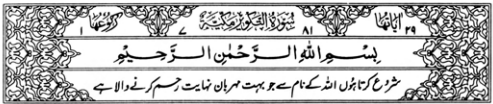 اٰیاتها ۲۹ ۸۱ سُوْرَةُ التَّكْوِيْرِ مَكِّيَّةٌ ۷ رُكُوْعُهَا ۱
بِسْمِ اللّٰهِ الرَّحْمٰنِ الرَّحِيْمِ
شروع کرتا ہوں اللہ کے نام سے جو بہت مہربان نہایت رحم کرنے والا ہے